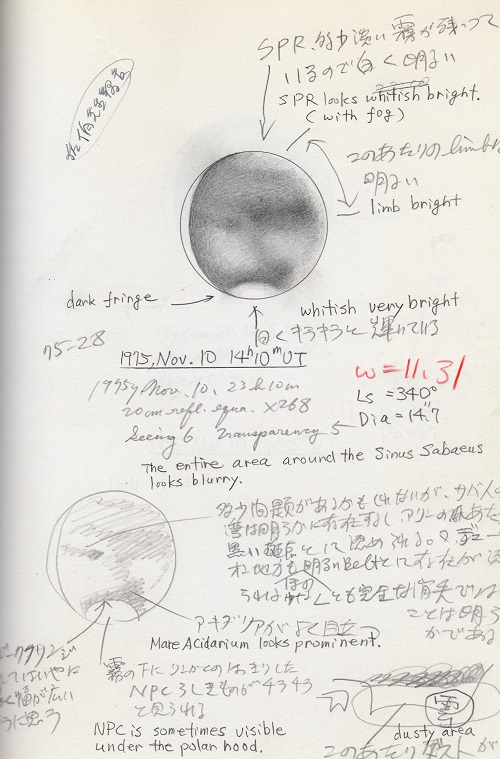 SPR. 多少淡い霧が残って
いるので白く明るい
SPR looks whitish bright.
(with fog)
このあたりのlimbは
明るい
limb bright
dark fringe
whitish very bright
白くキラキラと輝いている
75-28
1975, Nov. 10 14h10m UT
ω=11.31
1975y Nov. 10. 23h10m
Ls = 340°
20cm refl. equa. ×268
Dia = 14".7
Seeing 6 Transparency 5
The entire area around the Sinus Sabaeus
looks blurry.
多少問題があるかもしれないが、サバ人の
湾は明らかに存在するし、アリーの
黒い
地方も明るいBeltとして存在が
とも完全な消失では
ことは明ら
かである
アキダリアがよく目立つ
Mare Acidarium looks prominent.
ダークフリンジ
幅が広い
うに思う
霧の下にりんかくのはっきりした
NPCらしきものが時々
見られる
NPC is sometimes visible
under the polar hood.
雲
dusty area
このあたりダストが